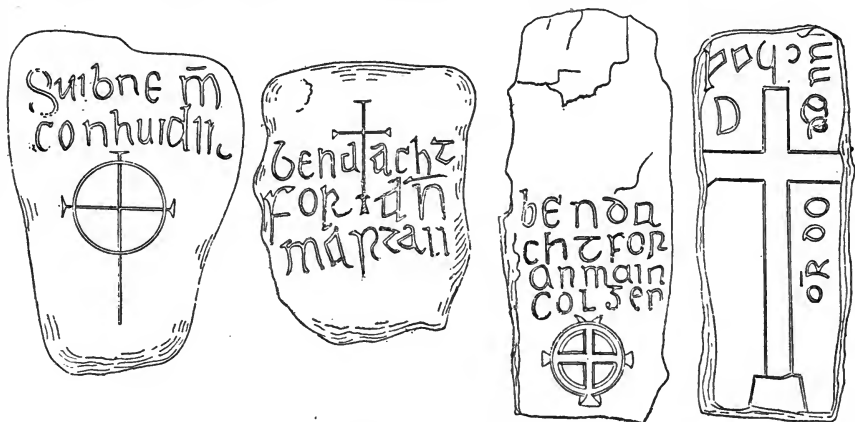 Suibne m̄
conhuidir
bendacht
for an̄
martan
benda
chtfor
anmain
colgen
ōR DO donn
chaD